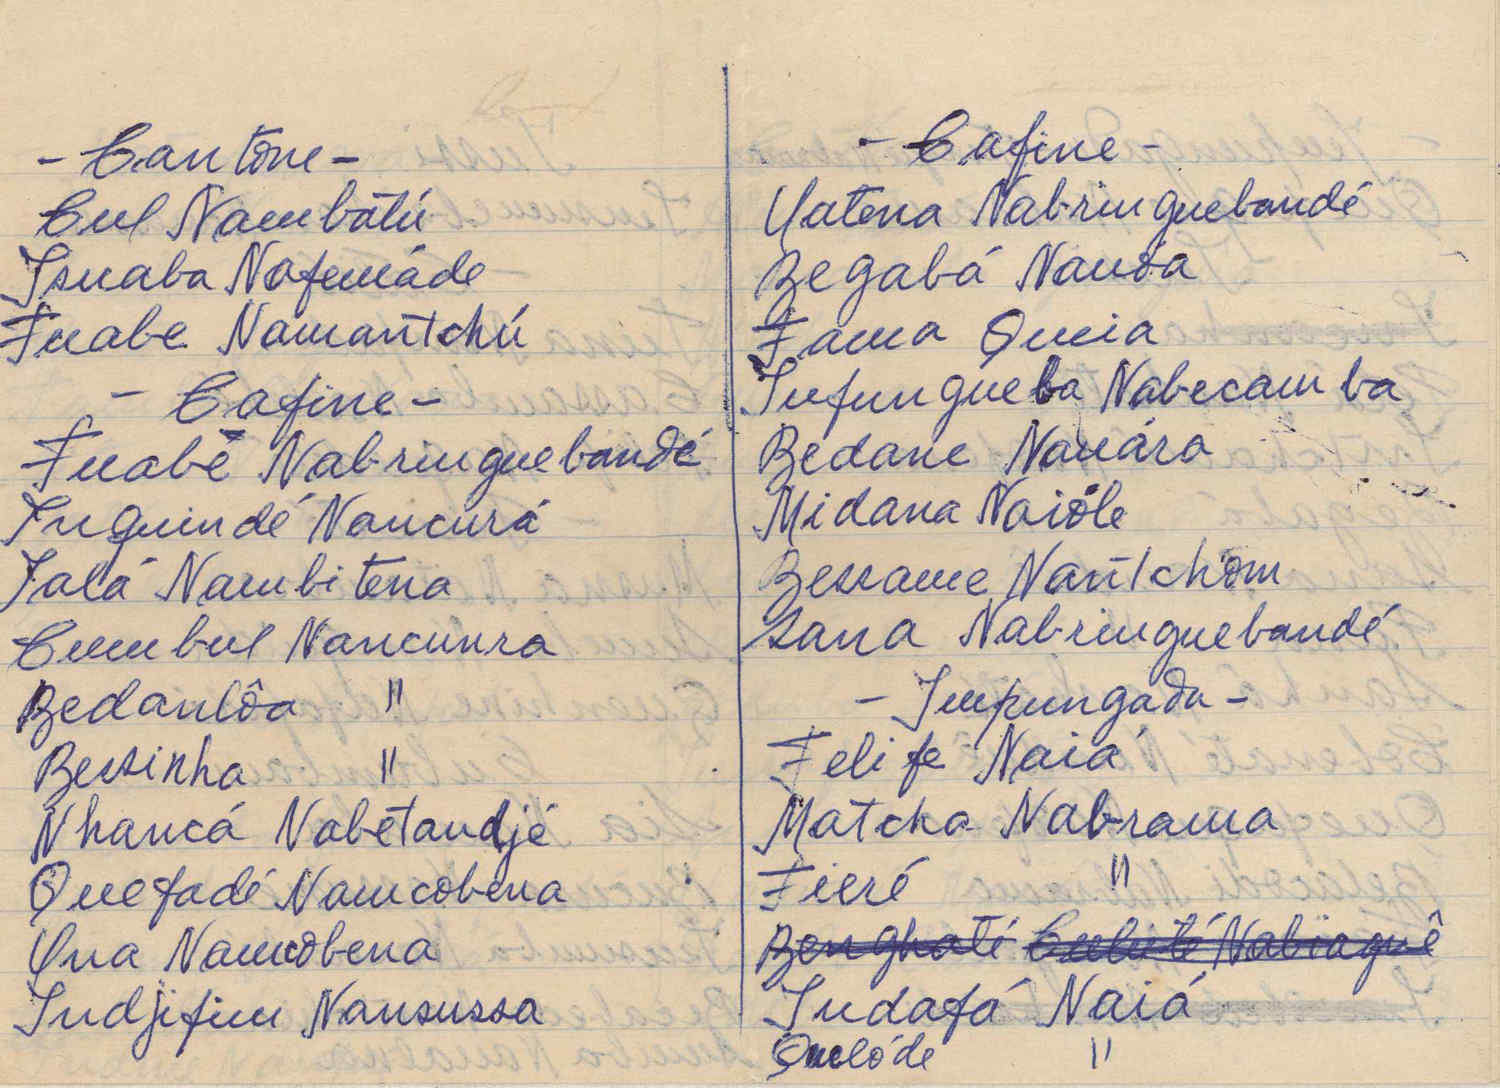 - Cantone -
Cul Nambatú
Isnaba Nafemáde
Fnabe Namantchú
- Cafine -
Fnabê Nabringuebandé
Inguindé Nancurá
Jalá Nambitena
Cumbul Nancunra
Bedanlôa "
Bessinha "
Nhancá Nabetandjé
Quefadé Namcobena
Una Namcobena
Indjifim Nansussa
- Cafine -
Yatena Nabringuebandé
Begabá Nansa
Fama Quia
Infungueba Nabecamba
Bedane Nauára
Midana Naióle
Bessame Nantchom
Sana Nabringuebandé
- Impungada -
Felife Naiá
Matcha Nabrama
Fieré "
Indafá Naiá
Quelóde "